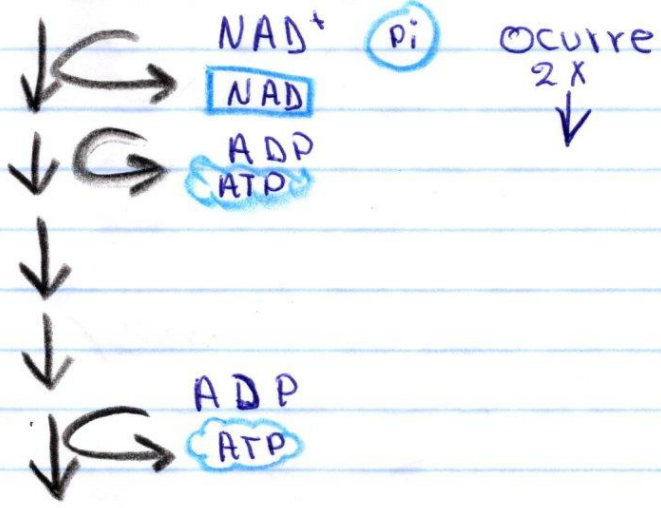 NAD+ Pi Ocurre
2X
NAD
ADP
ATP
ADP
ATP